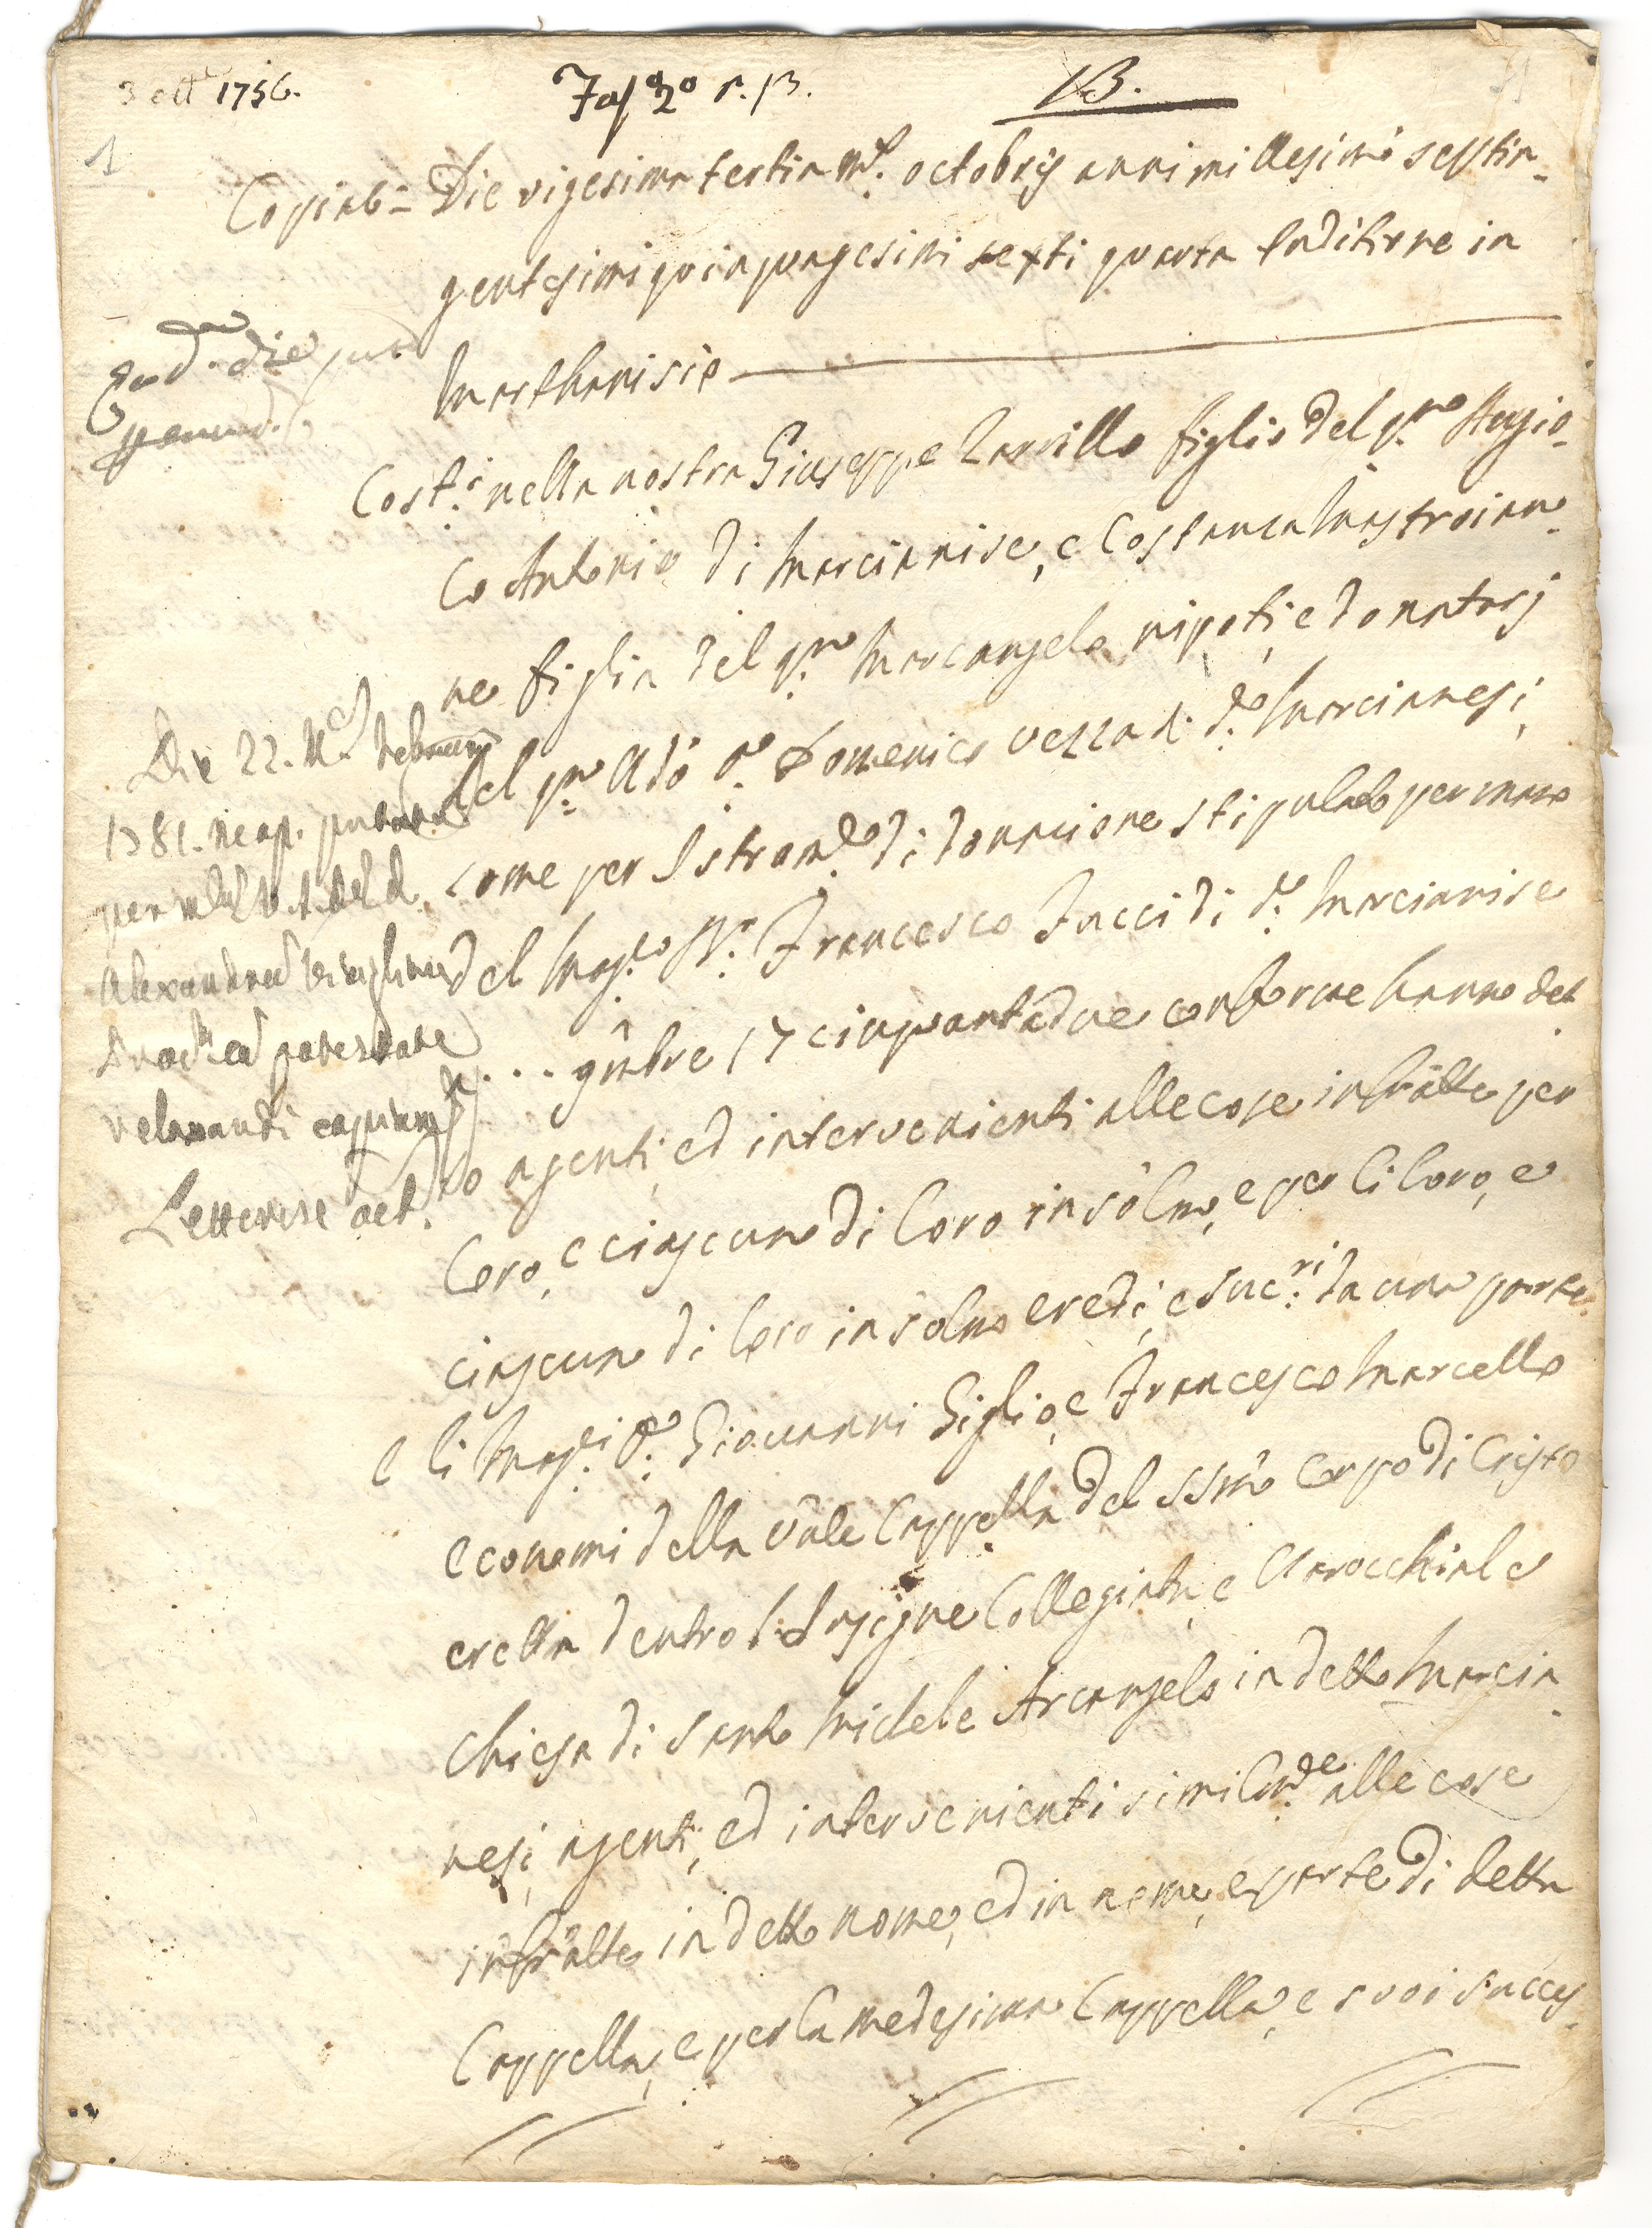 3 ott.e 1756.
Fas. 2o n. 13.
13.
1
Copia = Die vigesima tertia m.s octobris anni millesimi septin-
gentesimi quinquagesimi sexti quarta Inditione in
Marthanisio
Eod. die
Cost.i nella nostra Giuseppe Zarrillo figlio del q.m Angio-
lo Antonio di Marcianise, e Costanza Mastroian-
ne figlia del q.m Marcangelo nipoti, e donatarj
del q.m D. Domenico Vezza di d.o Marcianesi,
come per Istrom.to di donazione stipulato per mano
del Mag.co N.r Francesco Iucci di d.o Marcianise
a ... 9mbre 17 cinquantadue conforme hanno det
to agenti, ed intervenienti alle cose infratte per
loro, e ciascuno di loro insolm, e per li loro, e
ciascuno di loro insolm eredi, e suc.ri da una parte.
E li Mag.ci D. Giovanni Giglio, e Francesco Marcello
economi della Vnle Cappella del SSmo Corpo di Cristo
eretta dentro l'Insigne Collegiata, e Parocchiale
Chiesa di Santo Michele Arcangelo in detto Marcia-
nesi, agenti, ed intervenienti similm.te alle cose
infratte in detto nome, ed in nome, e parte di detta
Cappella, e per la medesima Cappella, e suoi succes-
Die 22.
1781. neap.
Alexandro
potestate